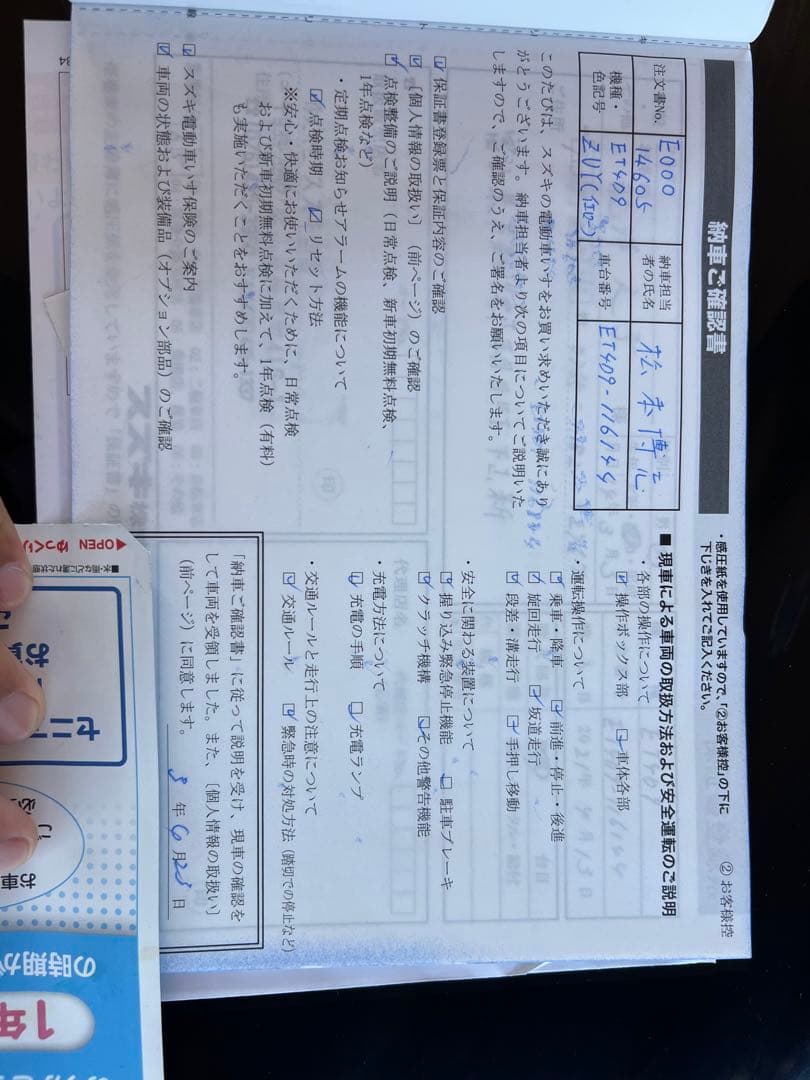 納車ご確認書
② お客様控
・感圧紙を使用していますので、「②お客様控」の下に
下じきを入れてご記入ください。
注文書No.
E000
14605
納車担当
者の氏名
機種・
色記号
ET4D9
ZVY
車台番号
ET4D9-116144
このたびは、スズキの電動車いすをお買い求めいただき誠にあり
がとうございます。納車担当者より次の項目についてご説明いた
しますので、ご確認のうえ、ご署名をお願いいたします。
保証書登録票と保証内容のご確認
［個人情報の取扱い］（前ページ）のご確認
点検整備のご説明（日常点検、新車初期無料点検、
1年点検など）
・定期点検お知らせアラームの機能について
点検時期 リセット方法
※安心・快適にお使いいただくために、日常点検
および新車初期無料点検に加えて、1年点検（有料）
も実施いただくことをおすすめします。
スズキ電動車いす保険のご案内
車両の状態および装備品（オプション部品）のご確認
■ 現車による車両の取扱方法および安全運転のご説明
・各部の操作について
操作ボックス部 車体各部
・運転操作について
乗車・降車 前進・停止・後進
旋回走行 坂道走行
段差・溝走行 手押し移動
・安全に関わる装置について
握り込み緊急停止機能 駐車ブレーキ
クラッチ機構 その他警告機能
・充電方法について
充電の手順 充電ランプ
・交通ルールと走行上の注意について
交通ルール 緊急時の対処方法（踏切での停止など）
「納車ご確認書」に従って説明を受け、現車の確認を
して車両を受領しました。また、［個人情報の取扱い］
（前ページ）に同意します。
年 6 月 23 日
▲OPEN ゆっくり
セニ
お車
の時期が
1年